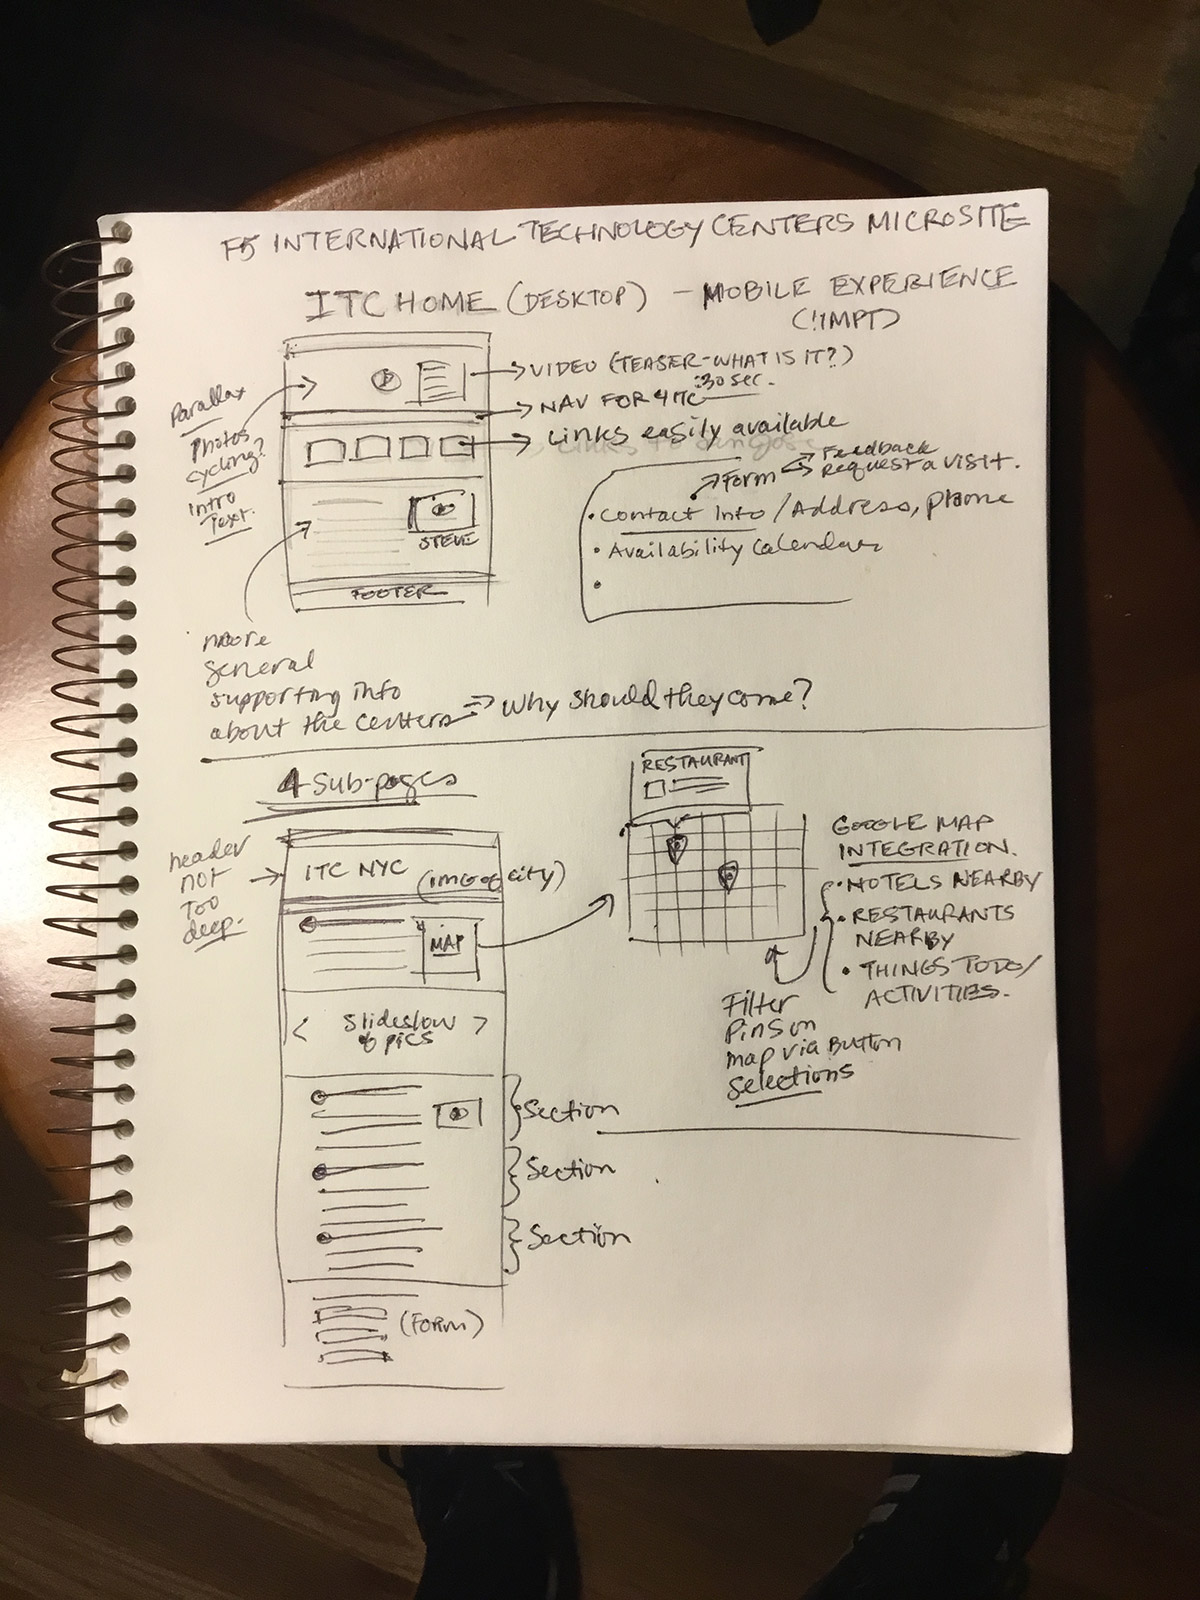 F5 INTERNATIONAL TECHNOLOGY CENTERS MICROSITE
ITC HOME (DESKTOP) - MOBILE EXPERIENCE
(!IMPT)
VIDEO (TEASER-WHAT IS IT?)
:30 sec.
NAV FOR 4 ITC
Links easily available
Parallax
Photos
cycling?
intro
Text.
STEVE
FOOTER
Form
Feedback
Request a visit.
• Contact Info / Address, phone
• Availability Calendar
•
more
general
supporting info
about the centers
Why should they come?
4 Sub-pages
header
not
too
deep.
ITC NYC
(img of city)
MAP
< Slideshow >
of pics
Section
Section
Section
(FORM)
RESTAURANT
GOOGLE MAP
INTEGRATION.
• HOTELS NEARBY
• RESTAURANTS
NEARBY
• THINGS TO DO/
ACTIVITIES.
Filter
Pins on
map via Button
Selections